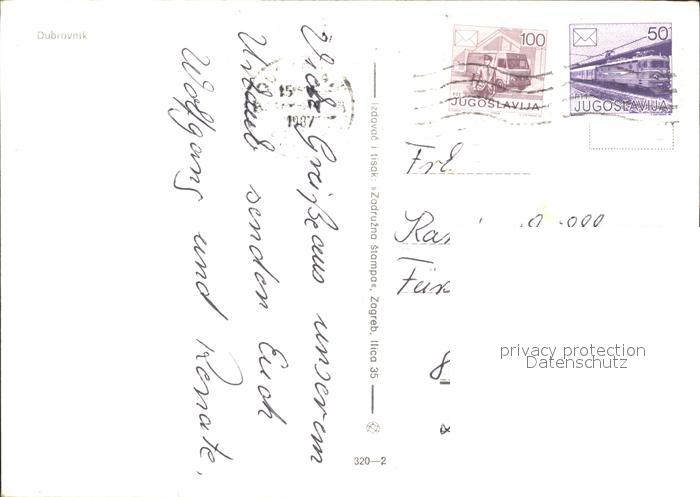 Dubrovnik
Viele Grüße aus unserem
Urlaub senden Euch
Wolfgang und Renate.
15
1987
Izdavač i tisak: »Zadružna štampa«, Zagreb, Ilica 35
320—2
100
JUGOSLAVIJA
50
JUGOSLAVIJA
Frl.
8
privacy protection
Datenschutz